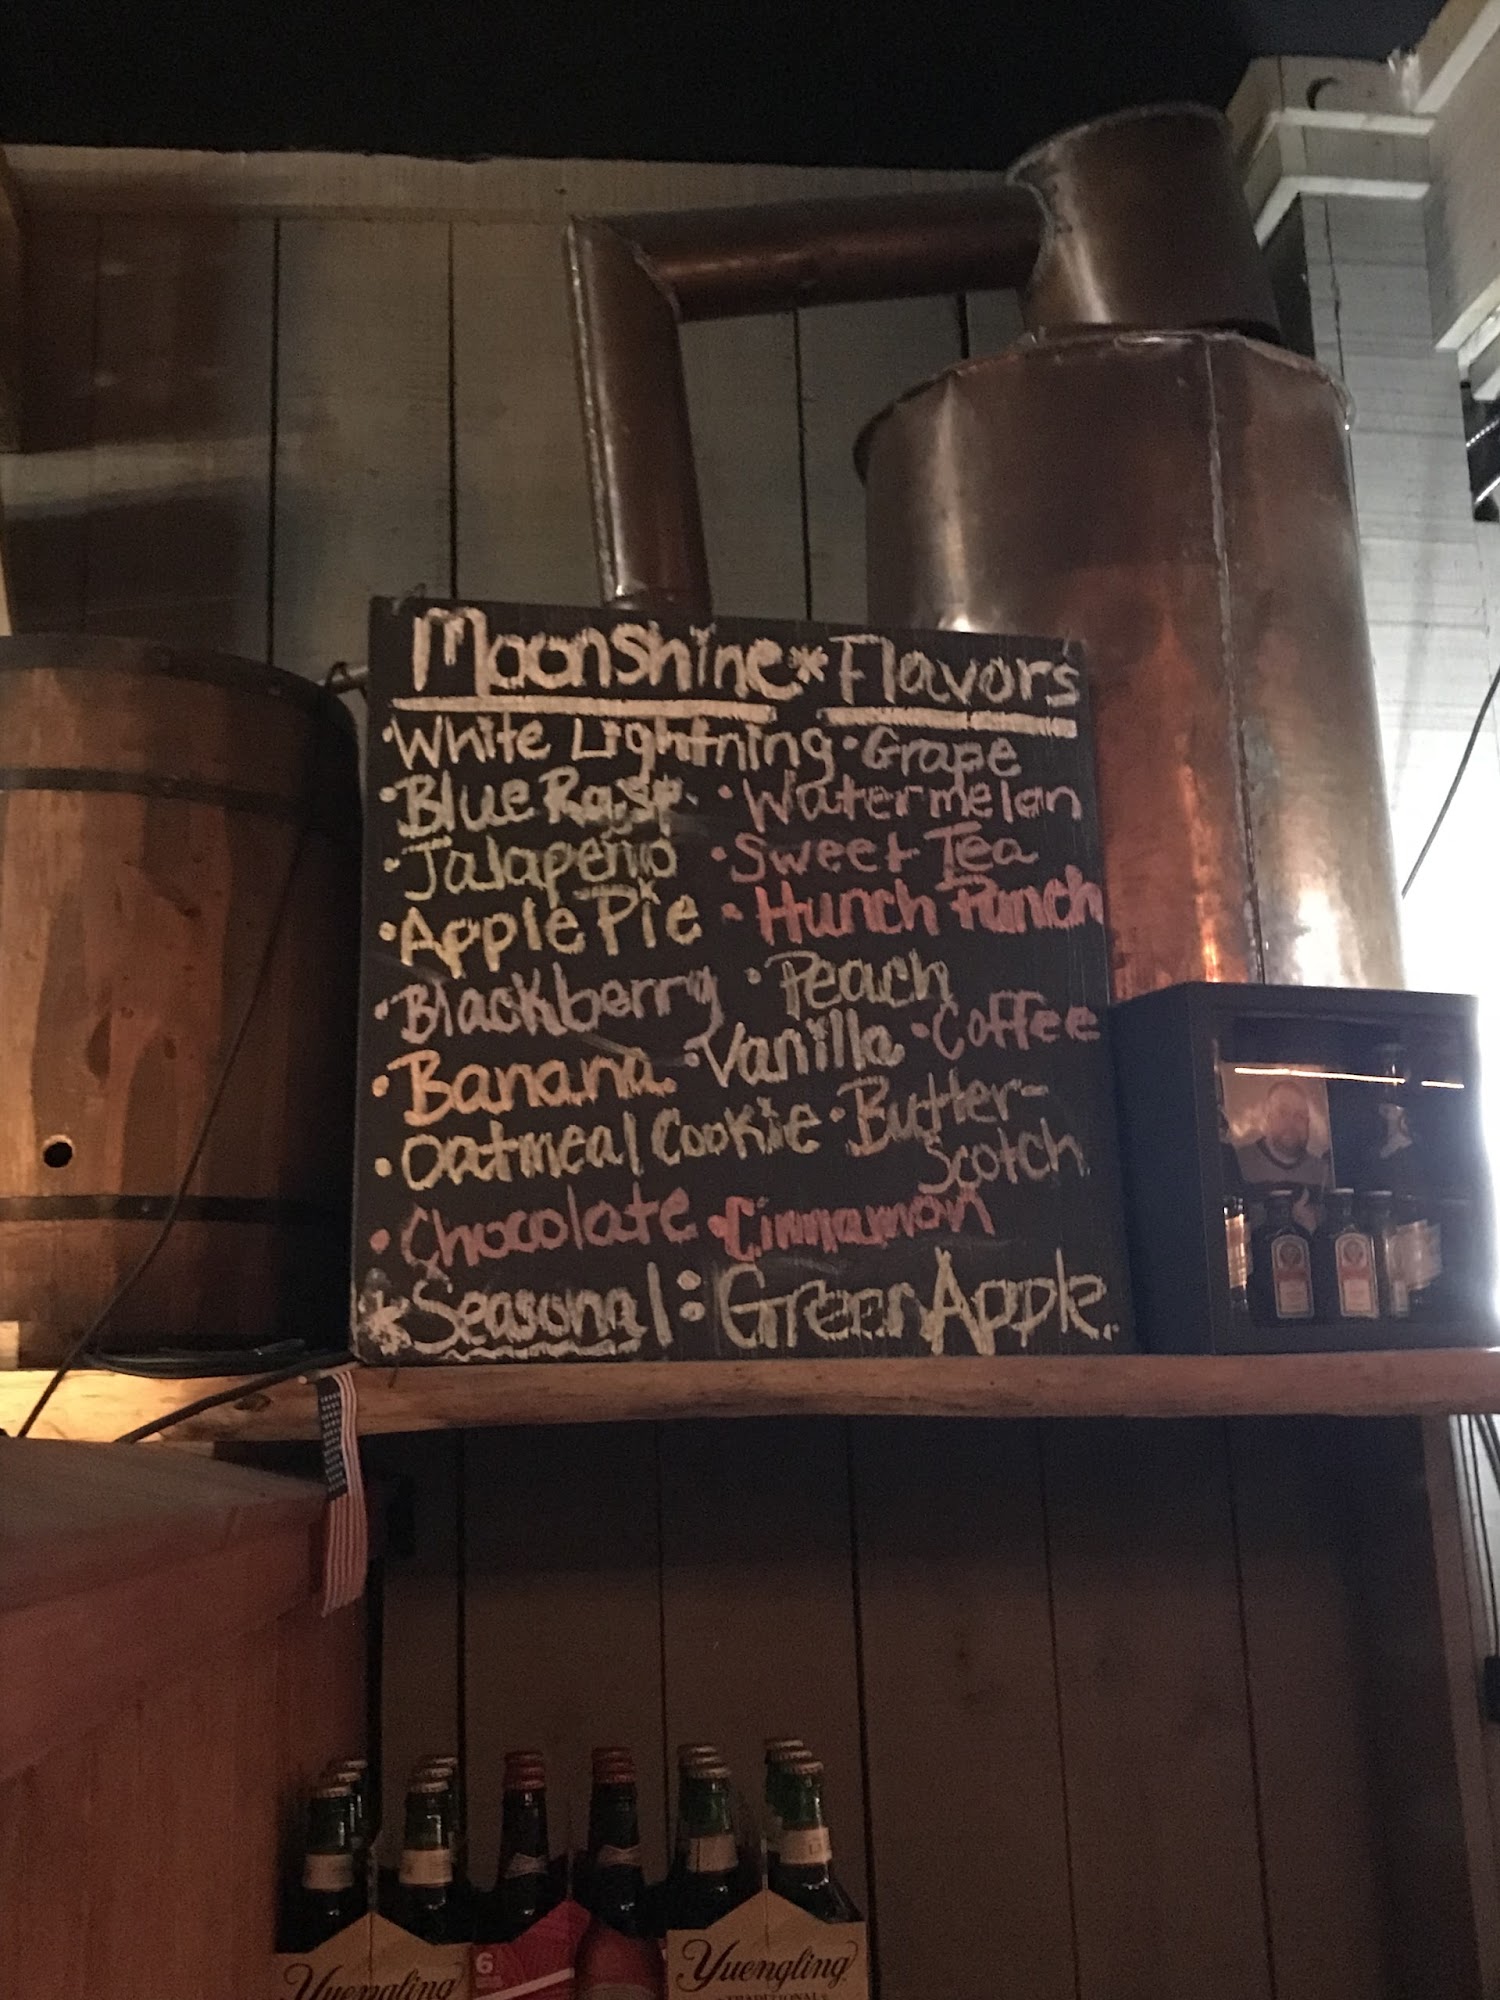 Moonshine*Flavors
•White Lightning •Grape
•Blue Rasp. •Watermelon
•Jalapeño •Sweet Tea
•Apple Pie •Hunch Punch
•Blackberry •Peach
•Banana •Vanilla •Coffee
•Oatmeal Cookie •Butter-
Scotch
•Chocolate •Cinnamon
*Seasonal: Green Apple.
Yuengling
6
Yuengling
TRADITIONAL